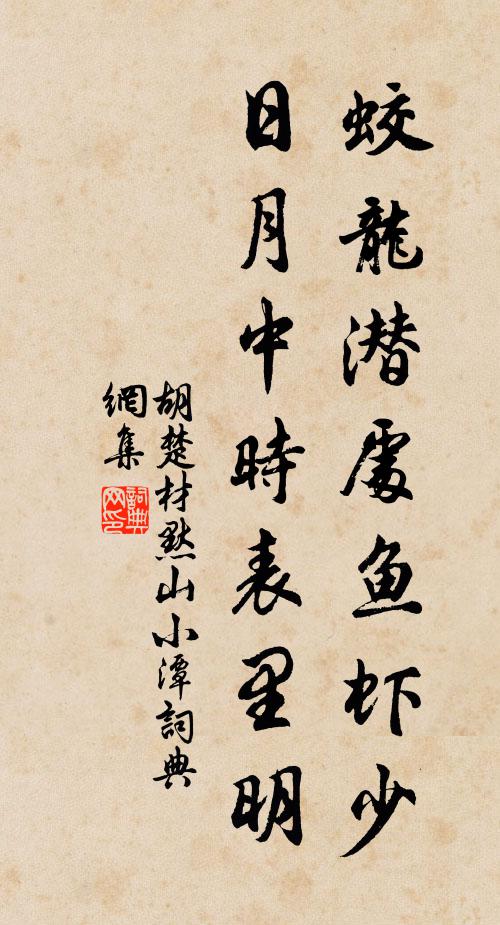 蛟龍潜處鱼虾少
日月中時表里明
胡楚材黙山小潭詞典
網集
詞典网印